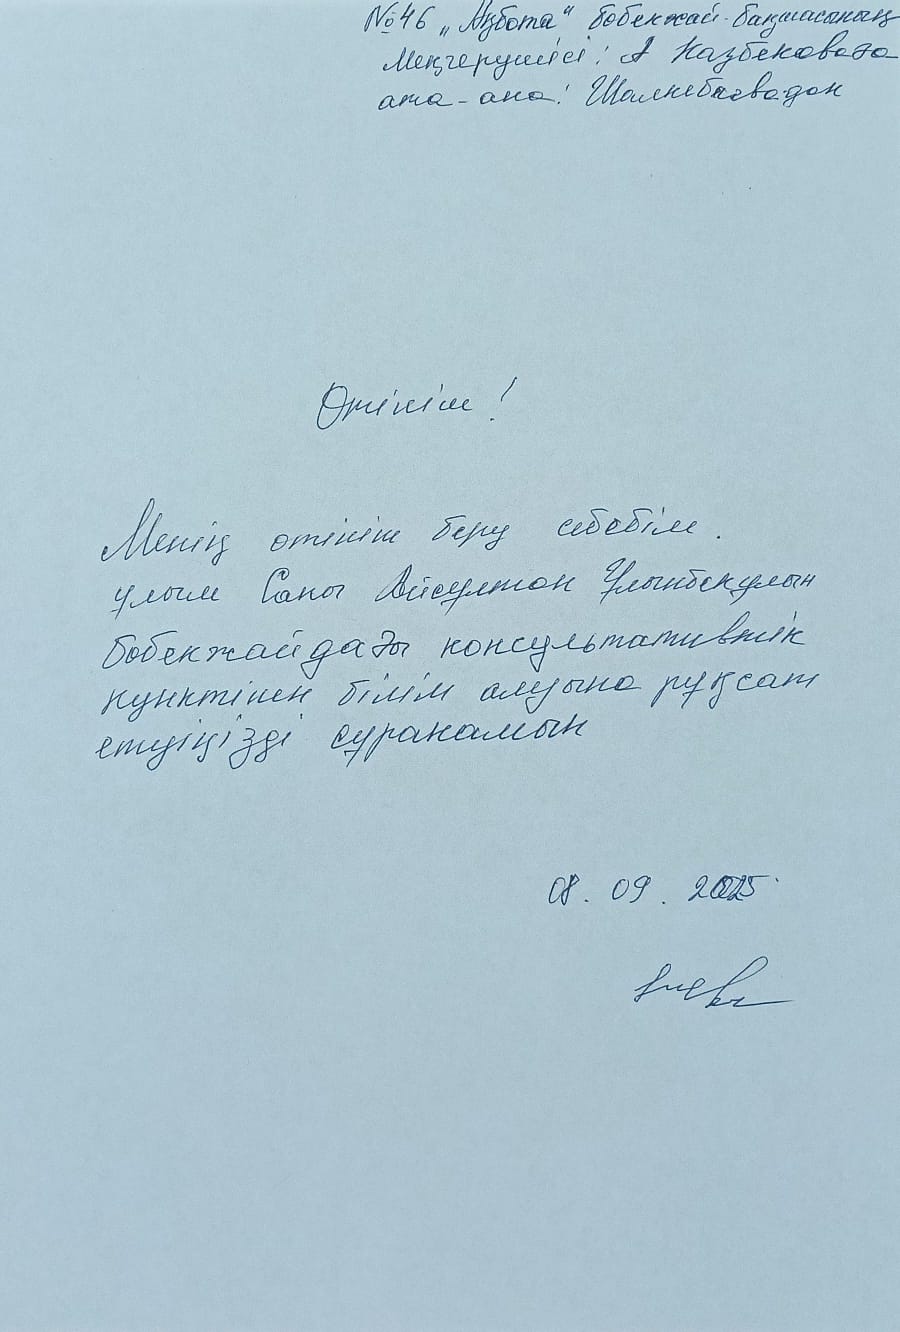 №46 „Ақбота" бөбекжай-бақшасының
Меңгерушісі: А Казбековаға
ата-ана: Шалкебаевадан
Өтініш!
Менің өтініш беру себебім.
ұлым Сапы Айсұлтан Ұлынбекұлын
бөбекжайдағы консультативтік
пунктінен білім алуына рұқсат
етуіңізді сұранамын
08.09.2025